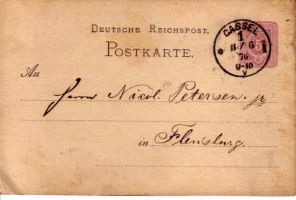 DEUTSCHE REICHSPOST.
POSTKARTE.
CASSEL
1
9-10
V
An
Herrn Nicol. Petersen jr
in Flensburg.